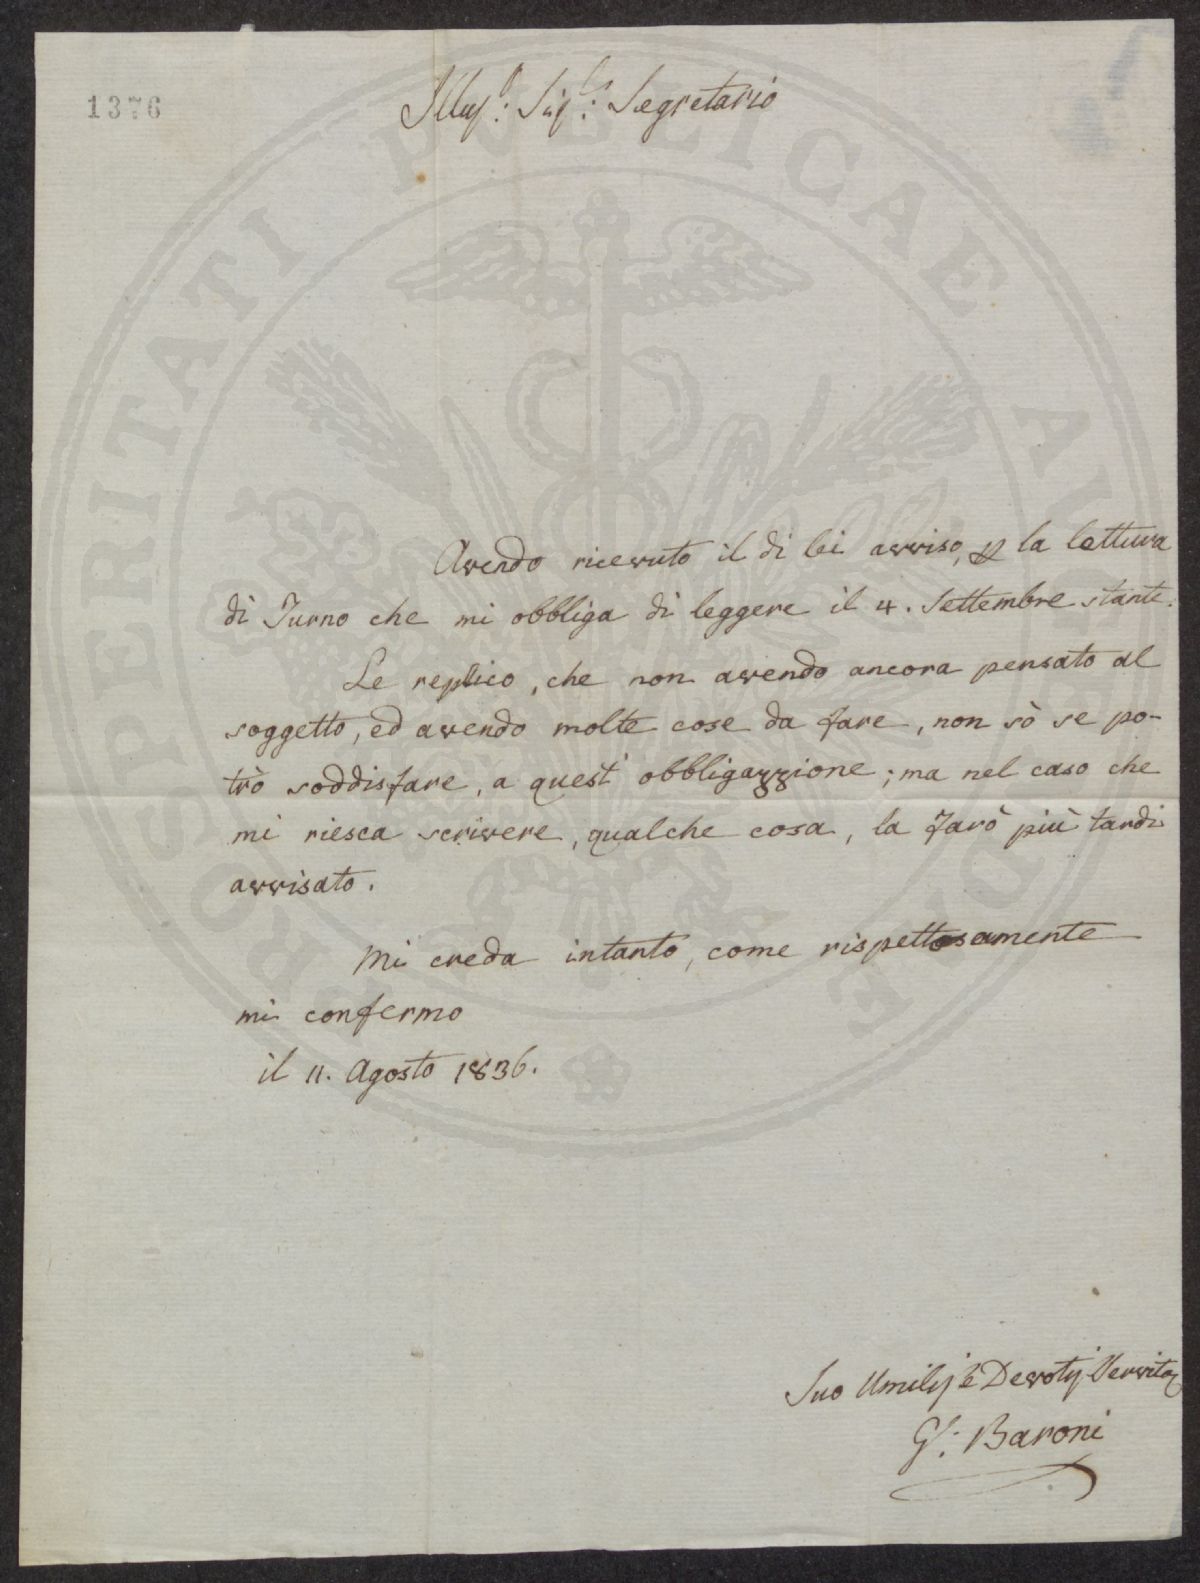 1376
Illus:º Sigʳ: Segretario
Avendo ricevuto il di lei avviso, p la lettura
di Turno che mi obbliga di leggere il 4. Settembre stante.
Le replico, che non avendo ancora pensato al
soggetto, ed avendo molte cose da fare, non sò se po-
trò soddisfare, a quest' obbligazzione; ma nel caso che
mi riesca scrivere, qualche cosa, la farò più tardi
avvisato.
Mi creda intanto, come rispettosamente
mi confermo
il 11. Agosto 1836.
Suo Umilis è Devotis Servito
G: Baroni